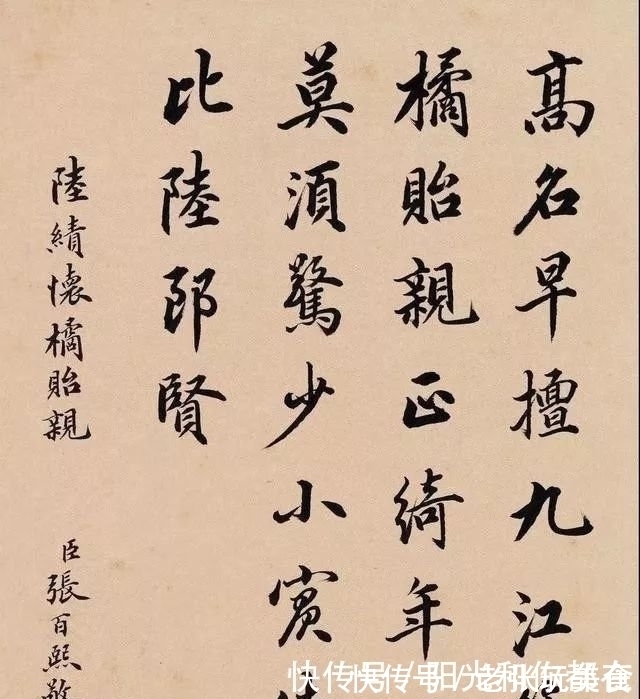 高名早擅九江
橘貽親正綺年
莫須驚少小賓
比陸郎賢
陸績懷橘貽親
臣張百熙敬
快传号